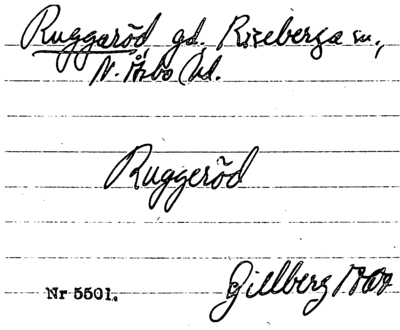 Ruggaröd, gd, Riseberga sn.,
N. Åsbo hd.
Ruggeröd
Nr 5501. Gillberg